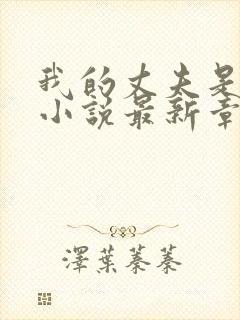 我的丈夫是
小说最新章
澤葉蓁蓁